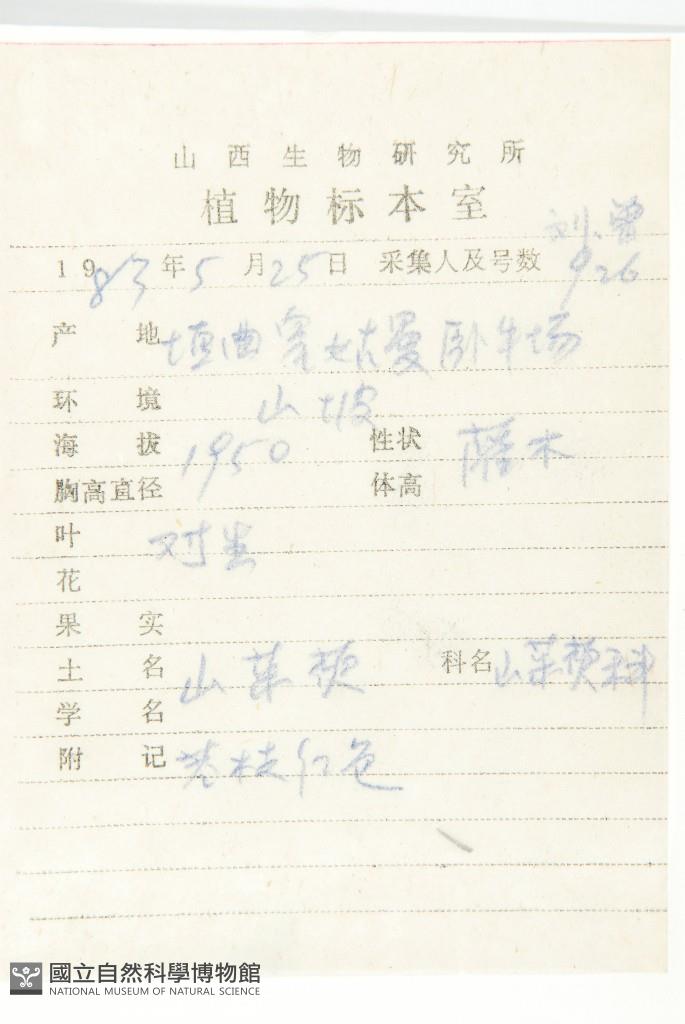 山西生物研究所
植物标本室
刘、曾
1983年5月25日 采集人及号数 926
产地 垣曲 曼卧牛场
环境 山坡
海拔 1950 性状 藤木
胸高直径 体高
叶 对生
花
果实
土名 山茱萸 科名 山茱萸科
学名
附记 老枝红色
國立自然科學博物館
NATIONAL MUSEUM OF NATURAL SCIENCE